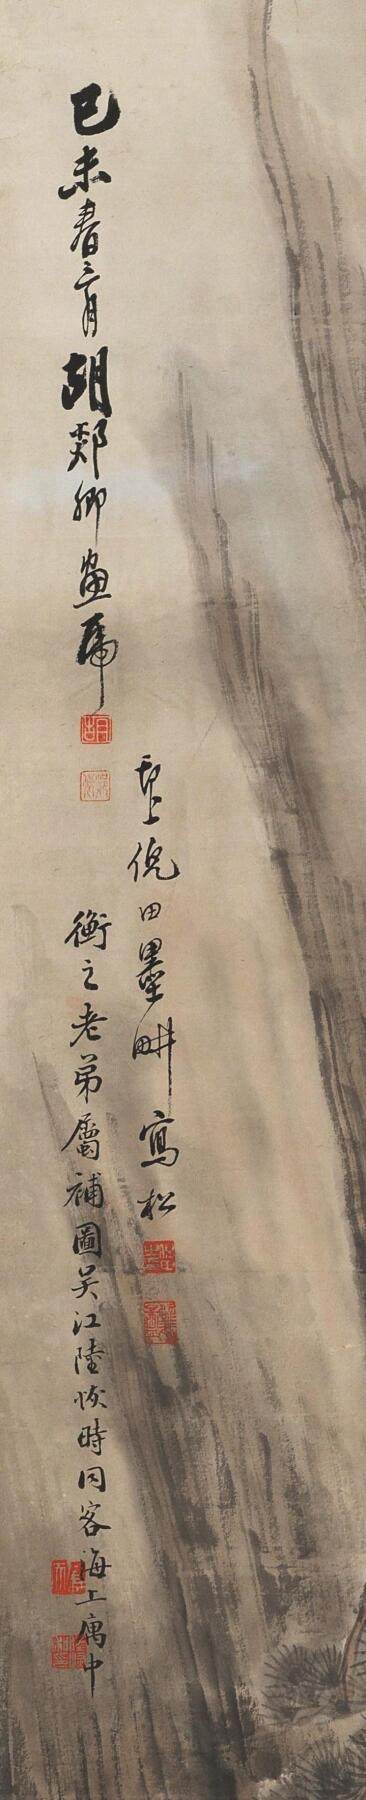 邗上倪田墨畊寫松
己未春三月胡郯卿畫虎
衡之老弟屬補圖吳江陸恢時同客海上寓中